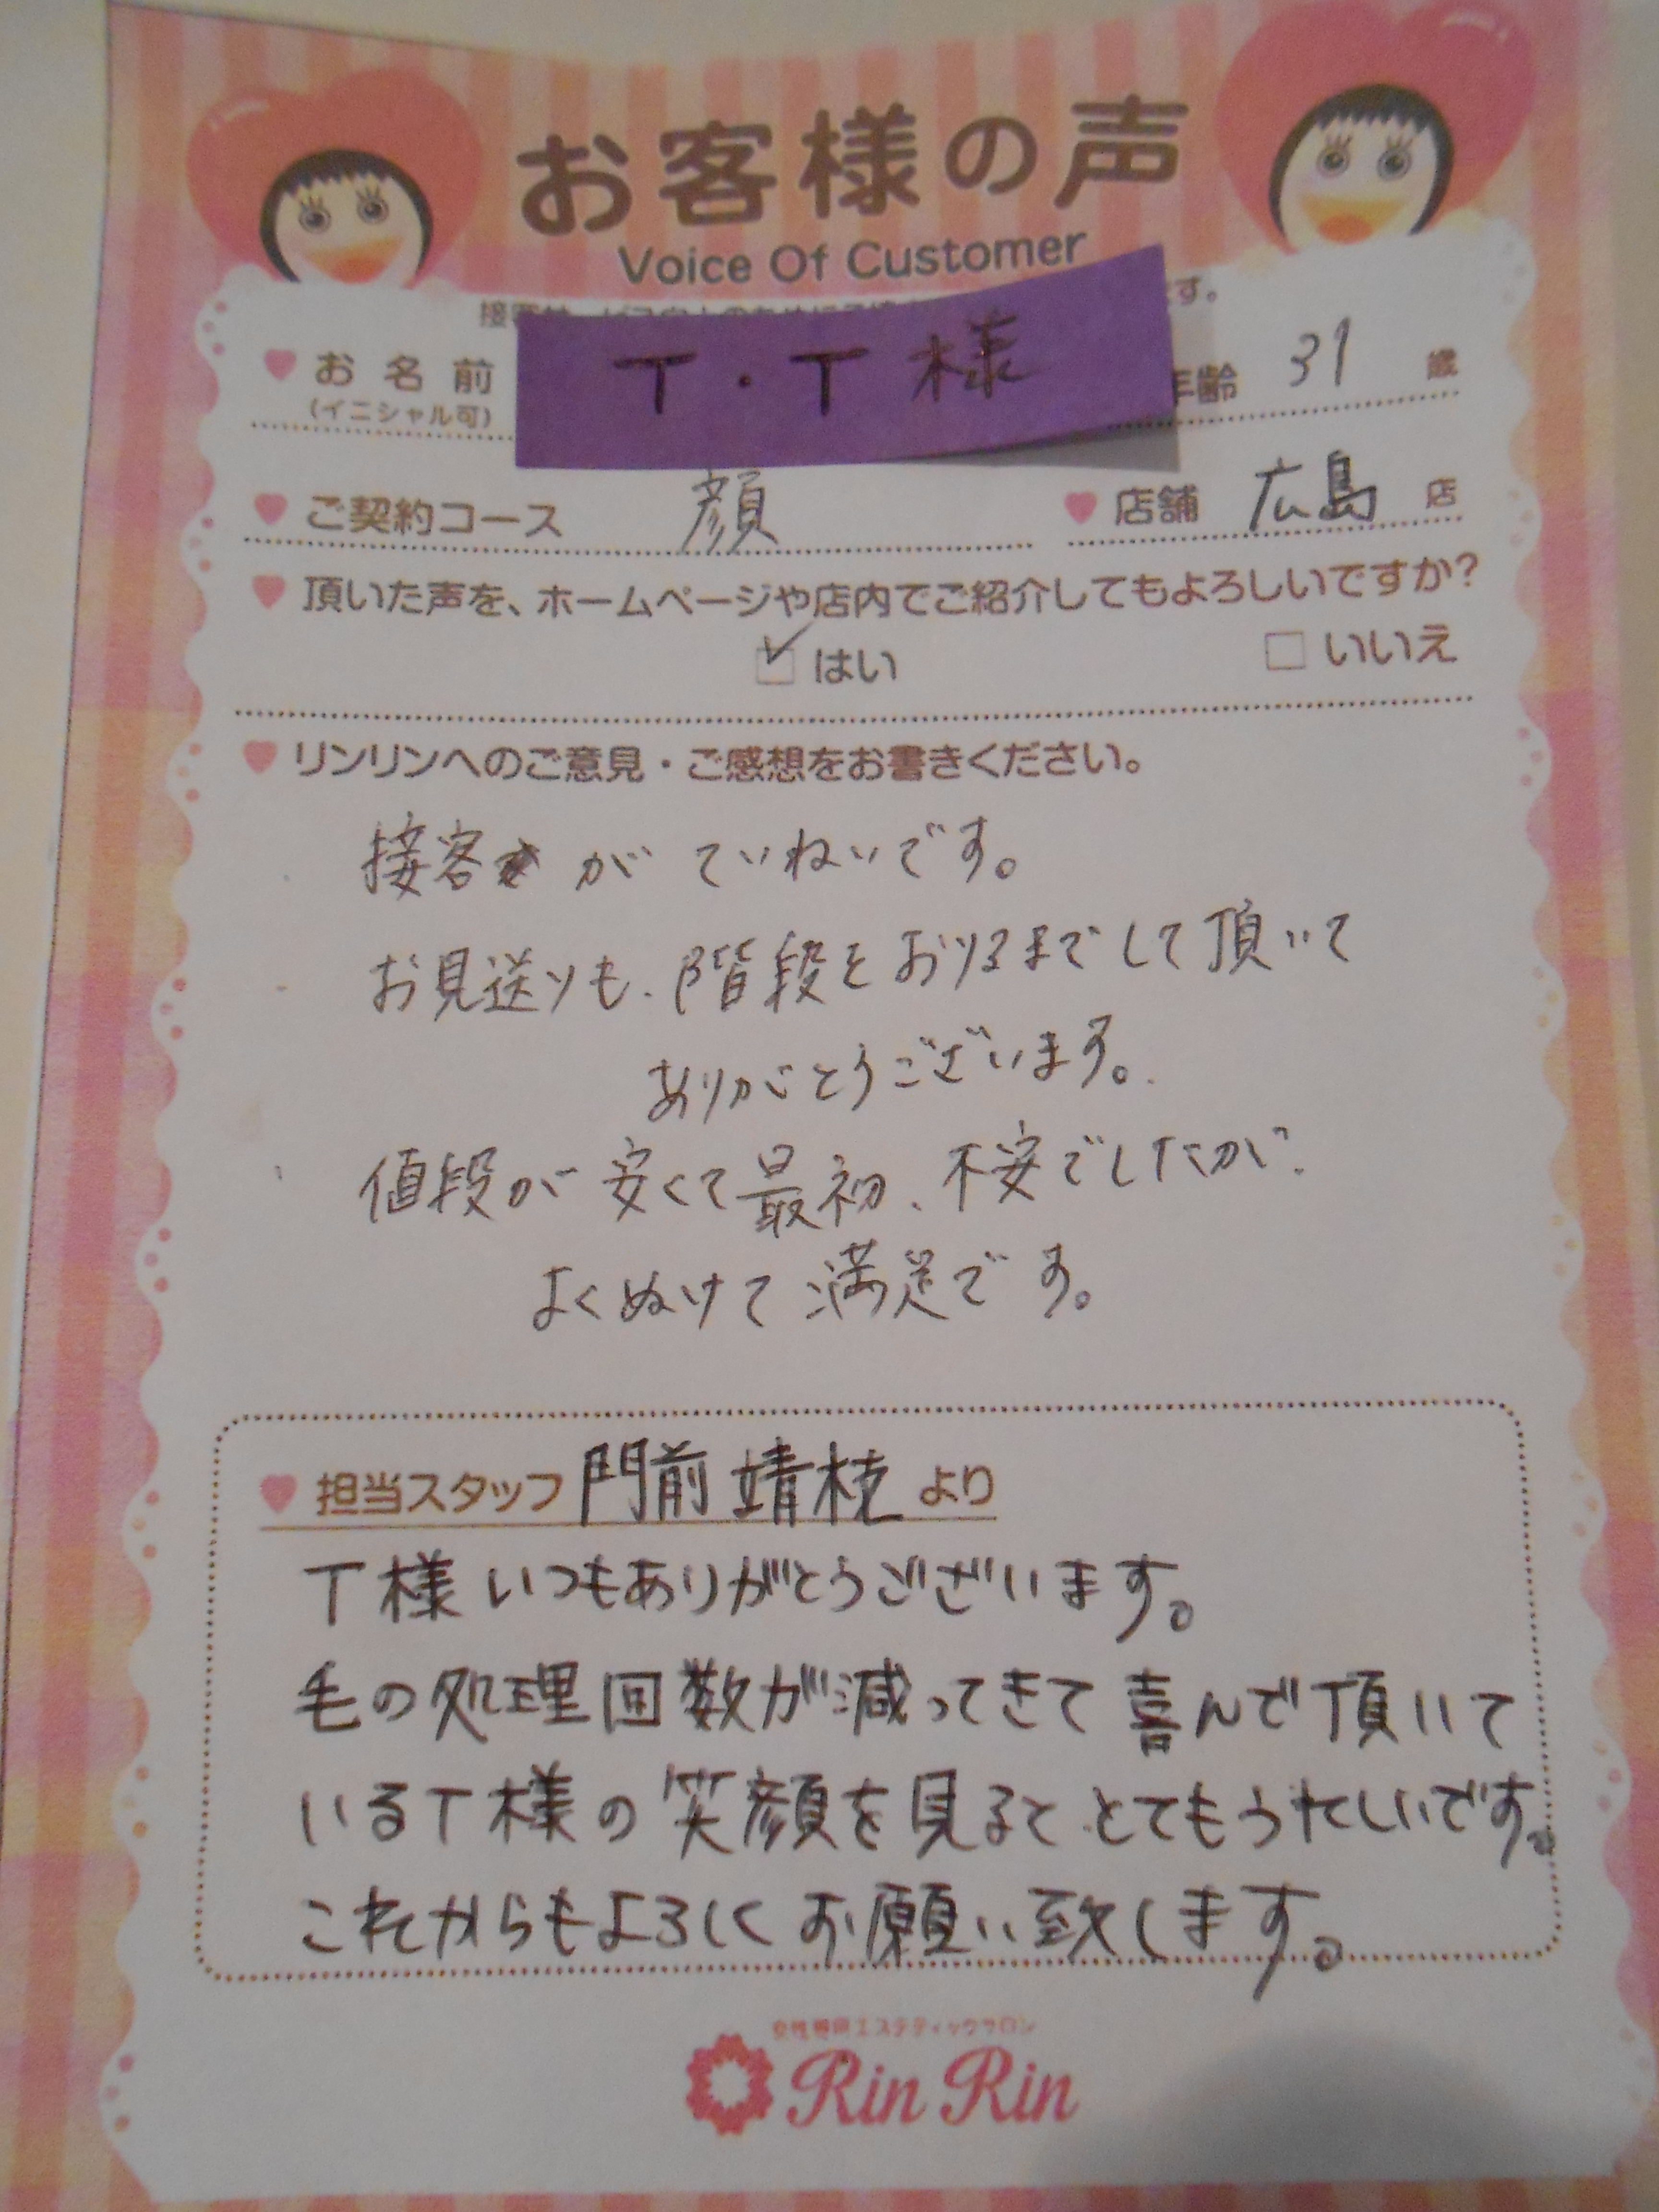 お客様の声
Voice Of Customer
す。
お名前 T・T様 年齢 31 歳
(イニシャル可)
ご契約コース 顔 店舗 広島 店
頂いた声を、ホームページや店内でご紹介してもよろしいですか?
はい いいえ
リンリンへのご意見・ご感想をお書きください。
接客 が ていねいです。
お見送りも、階段をおりるまでして頂いて
ありがとうございます。
値段が安くて最初、不安でしたが、
よくぬけて満足です。
担当スタッフ 門前 靖枝 より
T様 いつもありがとうございます。
毛の処理回数が減ってきて喜んで頂いて
いるT様の笑顔を見ると とてもうれしいです。
これからもよろしくお願い致します。
女性専用エステティックサロン
Rin Rin